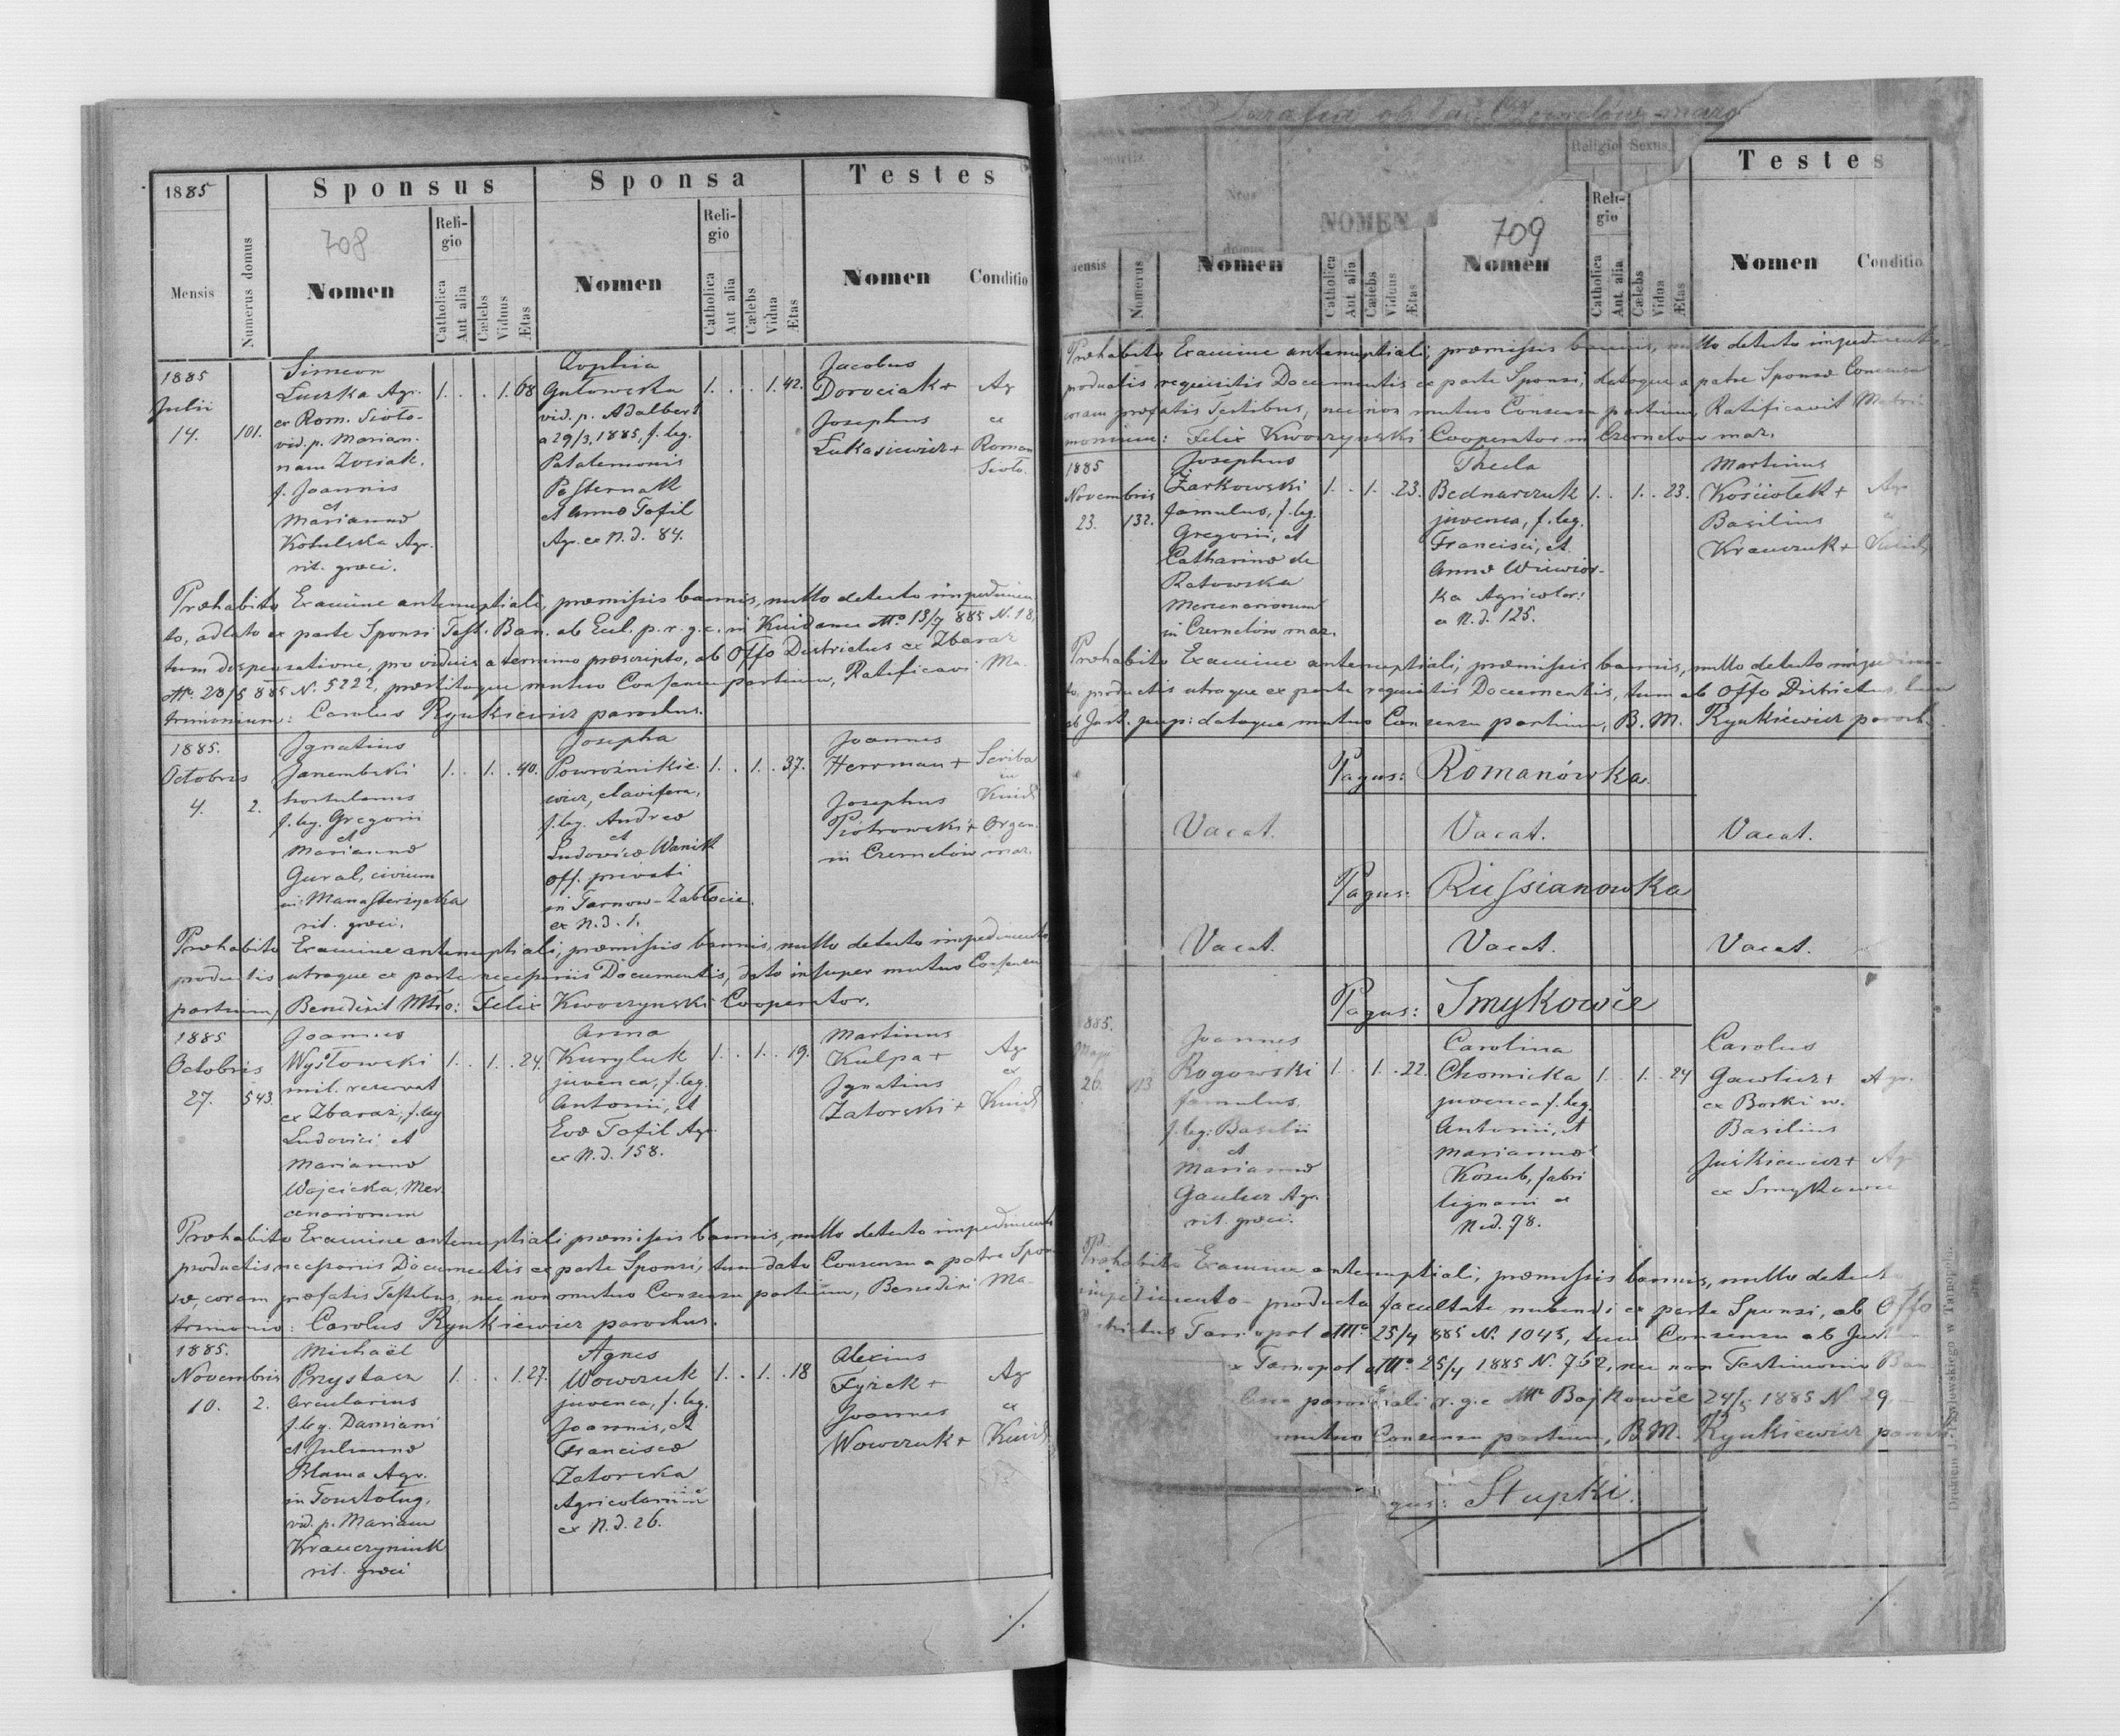 1885
Sponsus
Sponsa
Testes
708
Mensis
Numerus domus
Nomen
Religio
Catholica
Aut alia
Cælebs
Viduus
Ætas
Nomen
Religio
Catholica
Aut alia
Cælebs
Vidua
Ætas
Nomen
Conditio
1885
Julii
14.
101.
Simeon
Luszka Agr.
ex Rom. Sioło-
vid. p. Marian-
nam Zosiak,
f. Joannis
et
Mariannæ
Kobulska Agr.
rit. græci.
1. . . 1. 68
Zophia
Gutowska
vid. p. Adalbert
a 29/3, 1885, f. leg.
Patalemonis
Pasternak
et Annæ Tofil
Agr. ex N. d. 84.
1. . . 1. 42.
Jacobus
Dorociak +
Josephus
Lukasiewicz +
Ag
ex
Roman
Sioło.
Præhabito Examine antenuptiali, præmissis bannis, nullo detecto impedimen
to, adlato ex parte Sponsi Test. Ban. ab Eccl. p. r. g. c. in Kuidanu 13/7 885 N. 18,
tum dispensatione, pro viduis a termino præscripto, ab Offo Districtus ex Zbaraż
28/5 885 N. 5222, præstitoque mutuo Consensu partium, Ratificavi Ma-
trimonium: Carolus Rynkiewicz parochus.
1885.
Octobris
4.
2.
Ignatius
Janembski
hortulanus
f. leg. Gregorii
et
Mariannæ
Gural, civium
in Manasterzyska
rit. græci.
1. . 1. . 40.
Josepha
Powroźnikie-
wicz, clavifera,
f. leg. Andreæ
et
Ludovicæ Wanik
off. privati
in Tarnow-Zabłocie
ex N. d. 1.
1. . 1. . 37.
Joannes
Herrman +
Josephus
Piotrowski +
in Czernelów mar.
Scriba
in
Kuid
Organ.
Præhabito Examine antenuptiali, præmissis bannis, nullo detecto impedimento
productis utraque ex parte necessariis Documentis, dato insuper mutuo Consensu
partium, Benedixit Mtrio: Felix Kworzynski Cooperator.
1885
Octobris
27.
543.
Joannes
Wysłowski
mil. reservat
ex Zbaraż, f. leg
Ludovici, et
Mariannæ
Wojcicka, Mer-
cenariorum
1. . 1. . 24.
Anna
Kuryluk
juvenca, f. leg.
Antonii, et
Evæ Tofil Agr.
ex N. d. 158.
1. . 1. . 19.
Martinus
Kulpa +
Ignatius
Zatorski +
Ag
ex
Kuid
Præhabito Examine antenuptiali præmissis bannis, nullo detecto impedimento
productis necessariis Documentis ex parte Sponsi, tum dato Consensu a patre Spon
sæ, coram præfatis Testibus, nec non mutuo Consensu partium, Benedixi Ma-
trimonio: Carolus Rynkiewicz parochus.
1885.
Novembris
10.
2.
Michaël
Przystacz
Arcularius
f. leg. Damiani
et Juliannæ
Blama Agr.
in Toustoług,
vid. p. Mariam
Krawczyniuk
rit. græci
1. . . 1. 27.
Agnes
Wowczuk
juvenca, f. leg.
Joannis, et
Franciscæ
Zatorska
Agricolarum
ex N. d. 26.
1. . 1. . 18
Alexius
Fyżek +
Joannes
Wowczuk +
Ag
ex
Kuid
./.
Czernelów mazo
709
Religio Sexus
Testes
NOMEN
domus
Mensis
Numerus
Nomen
Catholica
Aut alia
Cælebs
Viduus
Ætas
Nomen
Religio
Catholica
Aut alia
Cælebs
Vidua
Ætas
Nomen
Conditio
Præhabito Examine antenuptiali, præmissis bannis, nullo detecto impedimento,
productis requisitis Documentis ex parte Sponsi, datoque a patre Sponsæ Consensu
coram præfatis Testibus, nec non mutuo Consensu partium, Ratificavit Matri-
monium: Felix Kworzynski Cooperator in Czernelow maz.
1885
Novembris
23.
132.
Josephus
Żarkowski
famulus, f. leg.
Gregorii, et
Catharinæ de
Ratowska
Mercenariorum
in Czernelów maz.
1. . 1. . 23.
Thecla
Bednarczuk
juvenca, f. leg.
Francisci, et
Annæ Wiewior-
ka Agricolar.
ex N. d. 125.
1. . 1. . 23.
Martinus
Kościołek +
Basilius
Krawczuk +
Ag
ex
Præhabito Examine antenuptiali, præmissis bannis, nullo detecto impedimen-
to, productis utraque ex parte requisitis Documentis, tum ab Offo Districtus, tum
ab Jud. pup: datoque mutuo Consensu partium, B. M. Rynkiewicz paroch.
Pagus: Romanówka.
Vacat.
Vacat.
Vacat.
Pagus: Russianowka
Vacat.
Vacat.
Vacat.
Pagus: Smykowce
885.
Maji
26.
13
Joannes
Rogowski
famulus,
f. leg. Basilii
et
Mariannæ
Gaulicz Agr.
rit. græci.
1. . 1. . 22.
Carolina
Chomicka
juvenca f. leg.
Antonii, et
Mariannæ
Kozub, fabri
lignarii ex
N. d. 78.
1. . 1. . 24
Carolus
Gawlicz +
ex Borki w.
Basilius
Juśkiewicz +
ex Smykowce
Agr.
Ag
Præhabito Examine antenuptiali, præmissis bannis, nullo detecto
impedimento producta facultate nubendi ex parte Sponsi, ab Offo
Districtus Tarnopol 25/4 885 N. 1045, tum Consensu ab Jud
ex Tarnopol 25/4 1885 N. 752, nec non Testimonio Ban
parochiali r. g. c. Bajkowce 24/5 1885 N. 29,
mutuo Consensu partium, B. M. Rynkiewicz paroch.
gus: Stupki.
Drukiem J. Pawłowskiego w Tarnopolu.
./.